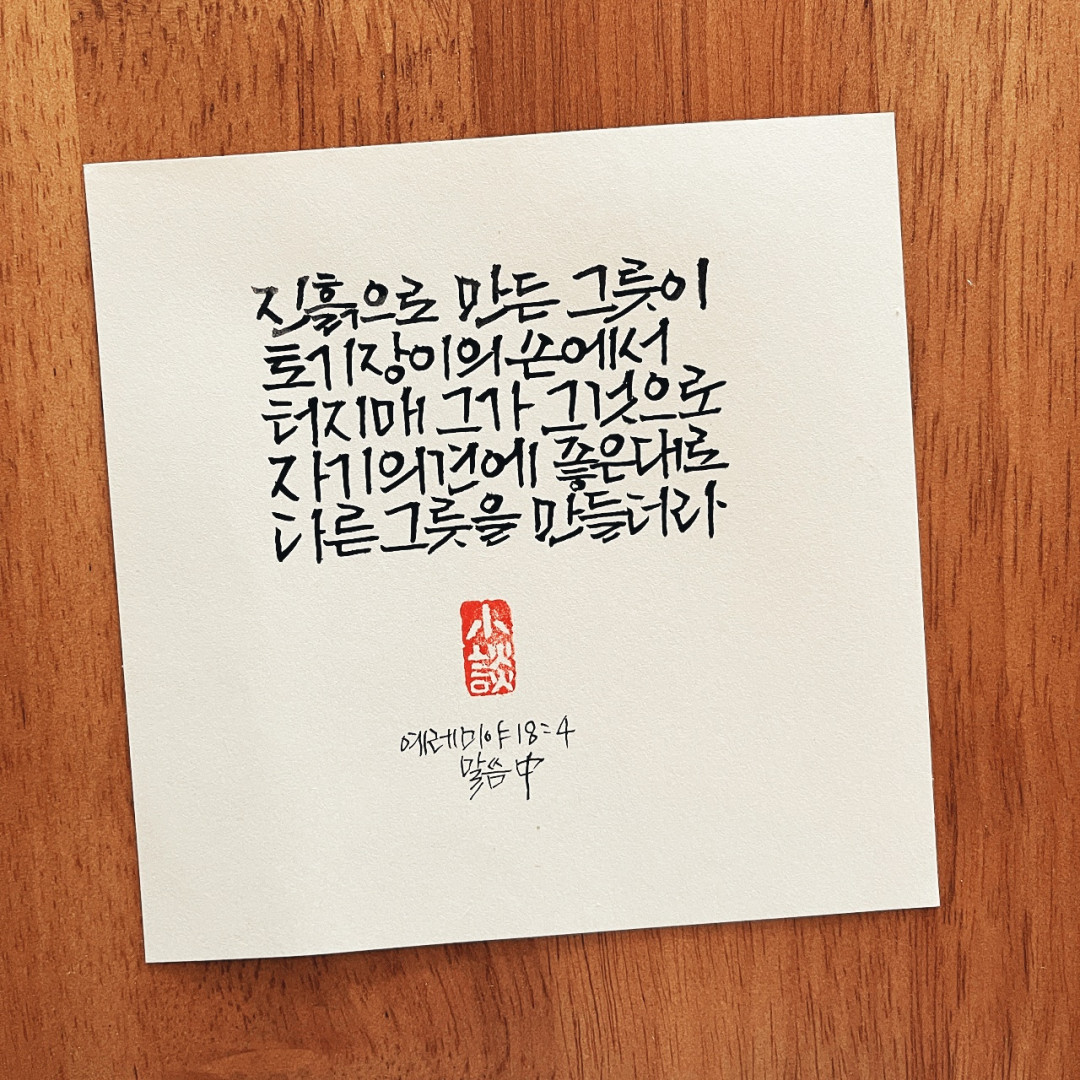 진흙으로 만든 그릇이
토기장이의 손에서
터지매 그가 그것으로
자기의견에 좋은대로
다른그릇을 만들더라
小談
예레미야 18:4
말씀 中